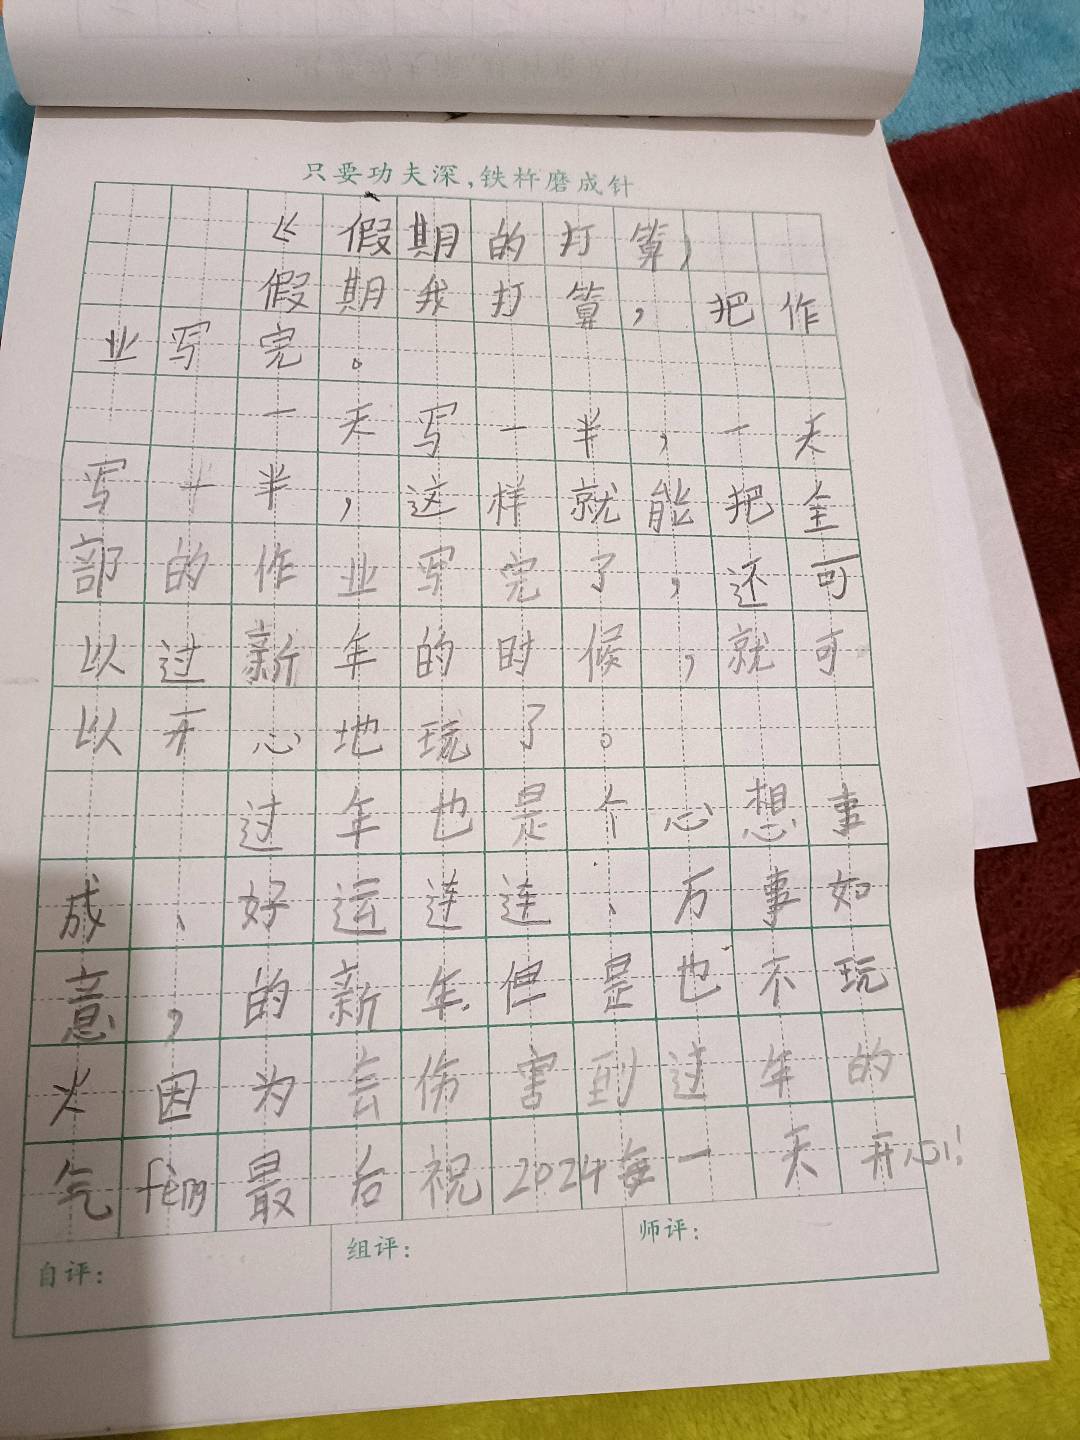 只要功夫深,铁杵磨成针
《假期的打算》
假期我打算,把作
业写完。
一天写一半,一天
写一半,这样就能把全
部的作业写完了,还可
以过新年的时候,就可
以开心地玩了。
过年也是个心想事
成、好运连连、万事如
意,的新年.但是也不玩
火因为会伤害到过年的
气fèng最后祝2024每一天开心!
自评: 组评: 师评: